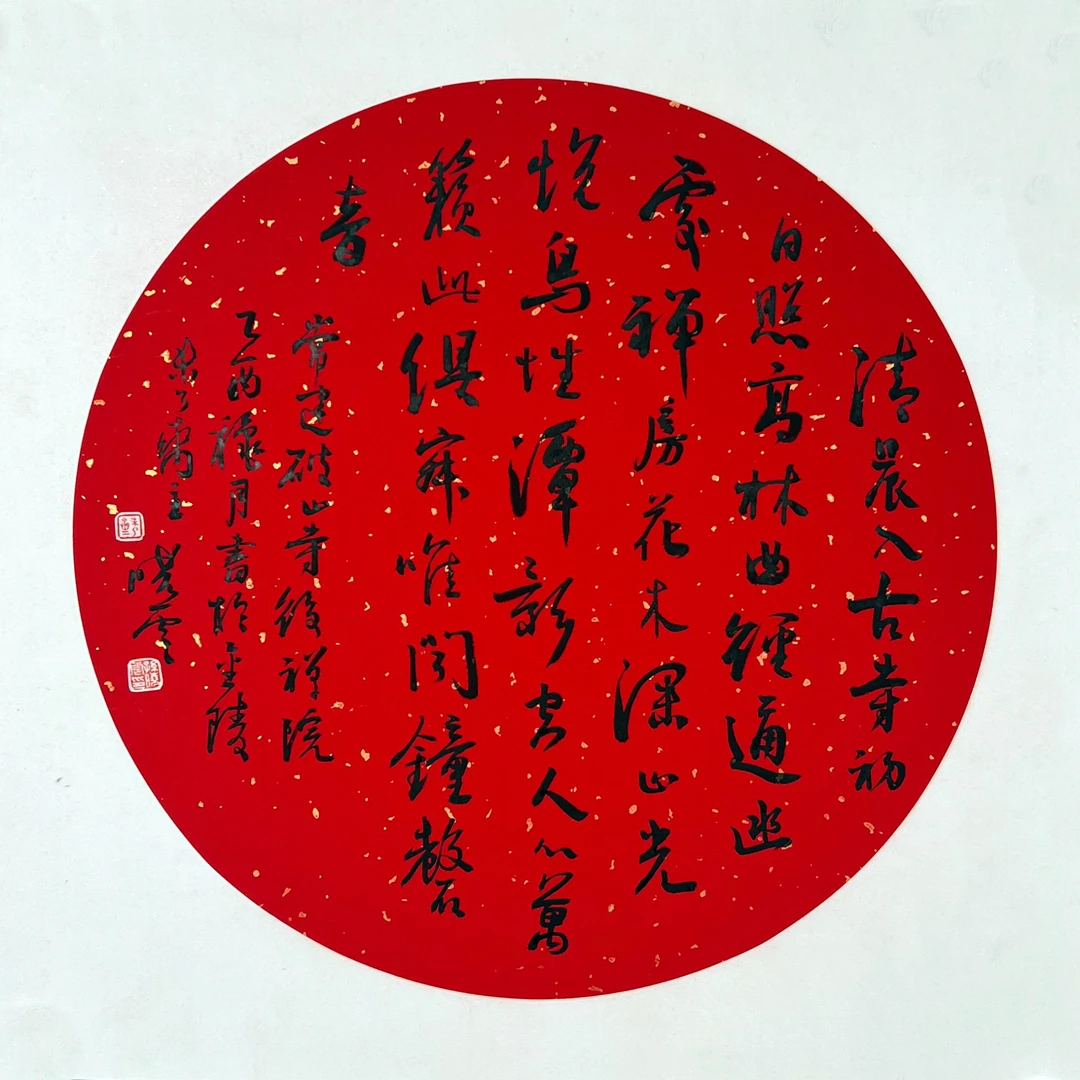 清晨入古寺初
日照高林曲徑通幽
處禪房花木深山光
悅鳥性潭影空人心萬
籟此俱寂唯聞鐘磬
音
常建破山寺後禪院
乙酉穐月書於金陵
主 曉雲